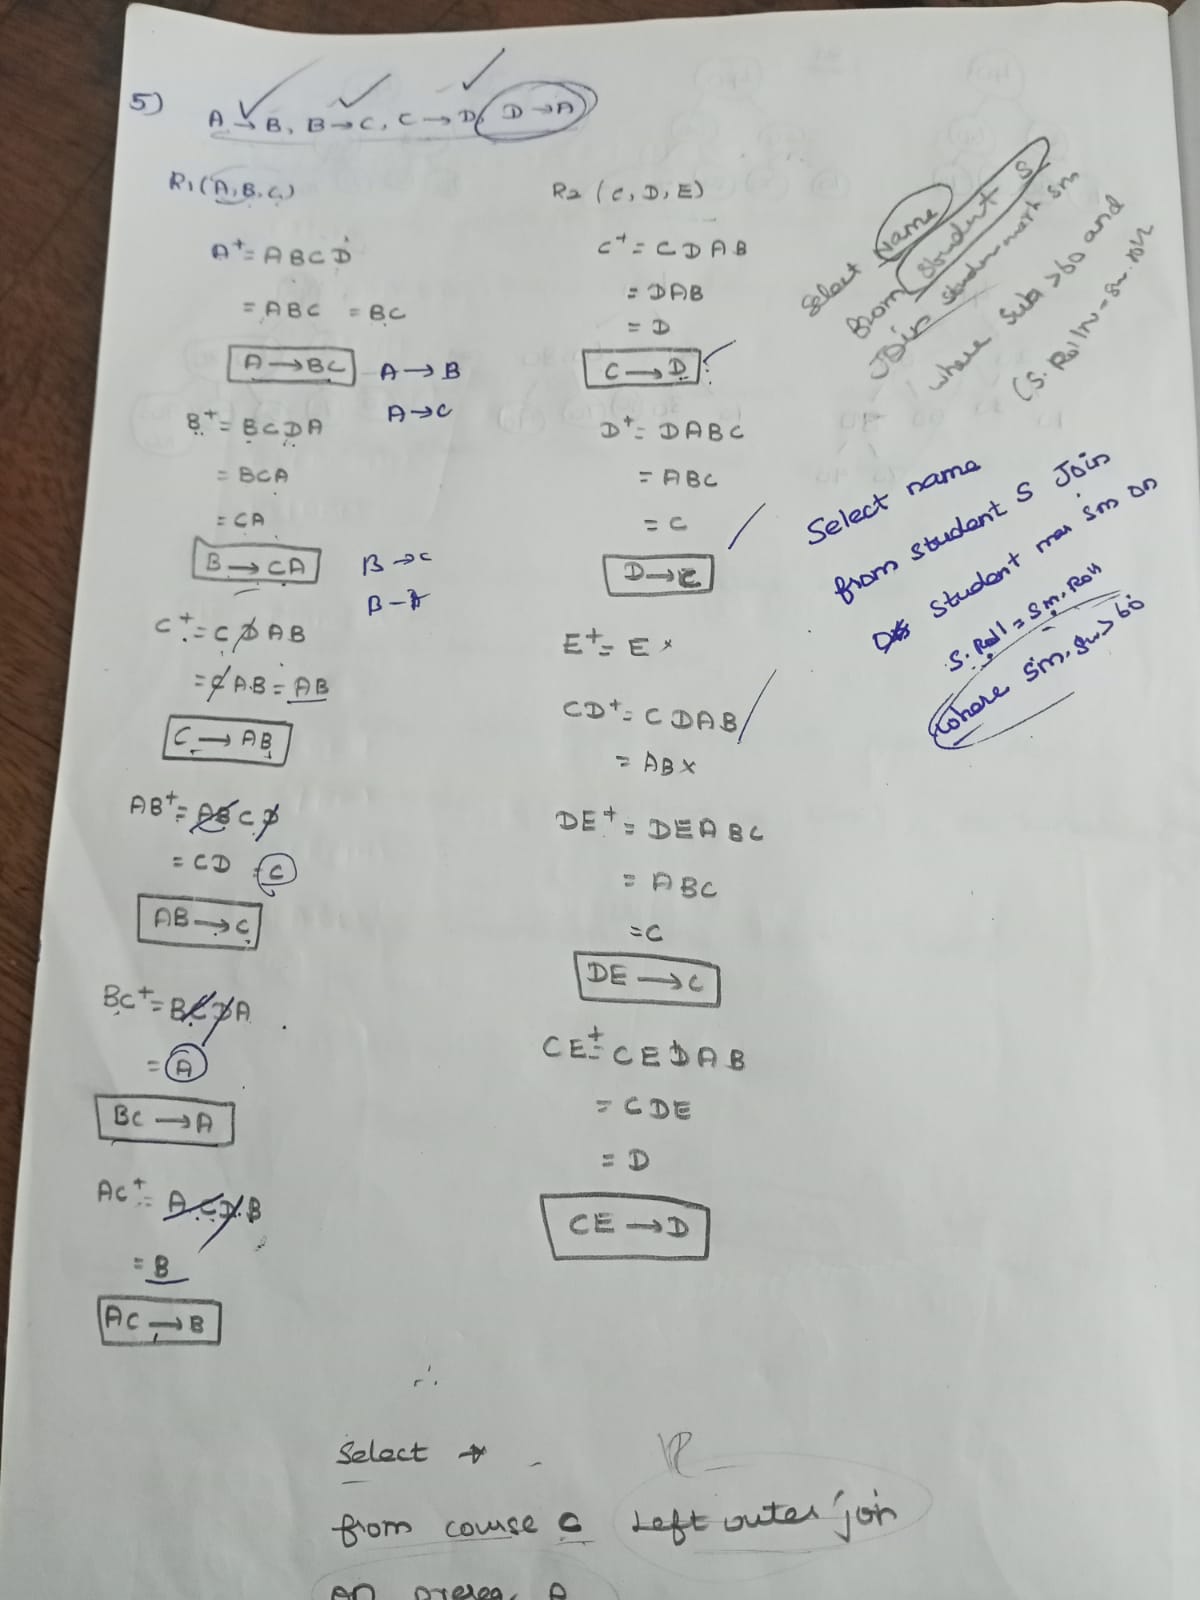 5) A→B, B→C, C→D, D→A
R1(A,B,C)
A+= ABCD
= ABC = BC
A→BC A→B
A→C
B+= BCDA
= BCA
= CA
B→CA B→C
B→A
C+= CDAB
= CAB = AB
C→AB
AB+= ABCD
= CD = C
AB→C
BC+= BCDA
= A
BC→A
AC+= ACDB
= B
AC→B
R2 (C,D,E)
C+= CDAB
= DAB
= D
C→D
D+= DABC
= ABC
= C
D→C
E+= E ×
CD+= CDAB
= AB×
DE+= DEABC
= ABC
= C
DE→C
CE+= CEDAB
= CDE
= D
CE→D
Select Name
from Student S
Join student mark sm
where sub >60 and
(S.Rolln = sm.
Select name
from Student S Join
Student sm on
S.Roll = Sm.Roll
where sm. >60
∴
Select *
from course C Left outer join
on prereq P